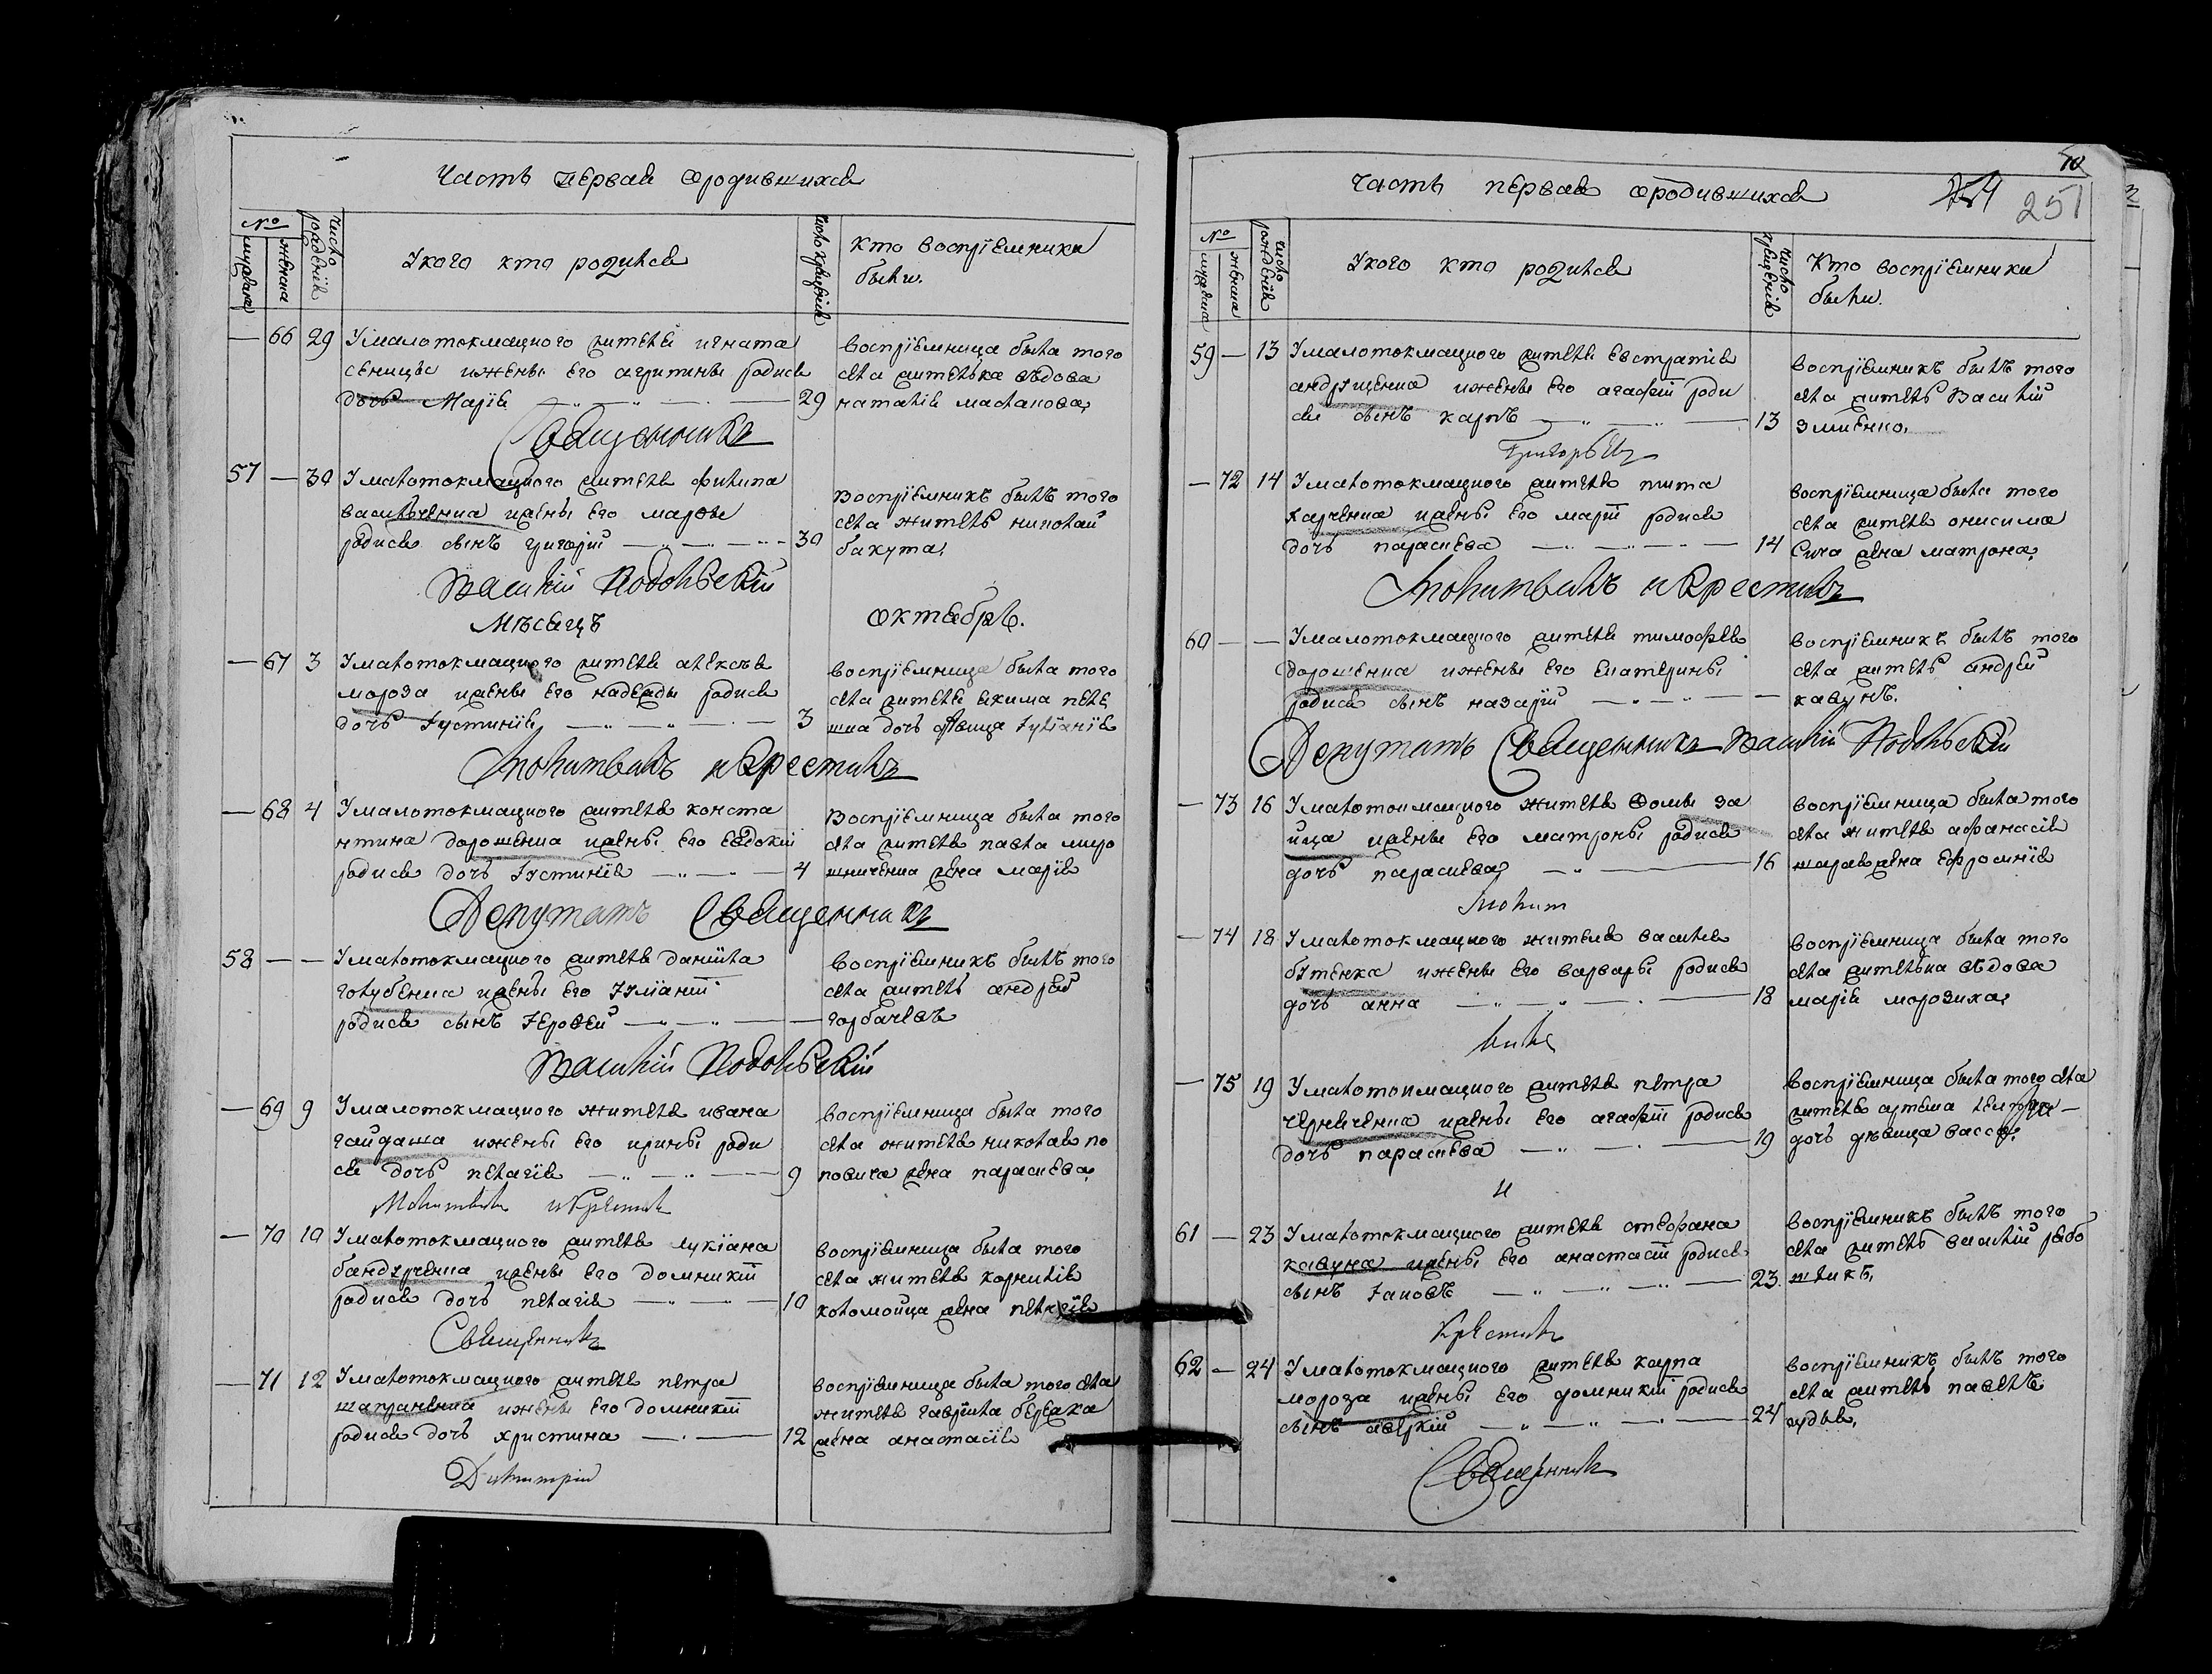 Часть первая ородившихся
№
мужеска
женска
число рожденія
Укого кто родился
число крещенія
кто воспріемники
были.
— 66 29 Умалотокмацкого жителя игната
сеницы ижены его агрипины родися
дочь Марія 29
воспріемница была того
села жителька вдова
наталія
Священникъ
57 — 30 Умалотокмацкого жителя филипа
василченка ижены его марфы
родися сынъ григорій 30
воспріемникъ былъ того
села житель николай
бакута,
Василій Подольскій
Мѣсяцъ Октябрь.
— 67 3 Умалотокмацкого жителя алексѣя
мороза ижены его надежды родися
дочь Іустинія 3
воспріемница была того
села жителя екима пете
шка дочь дѣвица Іуліанія
Молитвилъ и Крестилъ
— 68 4 Умалотокмацкого жителя конста
нтина дорошенка ижены его Евдокіи
родися дочь Іустинія 4
воспріемница была того
села жителя павла миро
шниченка жена марія
Депутатъ Священникъ
58 — — Умалотокмацкого жителя даніила
голубенка ижены его Іуліаніи
родися сынъ Іерофей —
воспріемникъ былъ того
села житель андрей
горбачевъ
Василій Подольскій
— 69 9 Умалотокмацкого жителя ивана
гайдаша ижены его ирины роди
ся дочь пелагія 9
воспріемница была того
села жителя николая по
повича жена параскева,
Молитвилъ и Крестилъ
— 70 10 Умалотокмацкого жителя лукіана
бандурченка ижены его домникіи
родися дочь пелагія 10
воспріемница была того
села жителя корнилія
коломойца жена пелагія
Священникъ
— 71 12 Умалотокмацкого жителя петра
ижены его домникіи
родися дочь христина 12
воспріемница была того села
жителя гавріила
жена анастасія
Димитрій
10
251
Часть первая ородившихся
№
мужеска
женска
число рожденія
Укого кто родился
число крещенія
Кто воспріемники
были.
59 — 13 Умалотокмацкого жителя Евстратія
андрущенка ижены его агафіи роди
ся сынъ карпъ 13
воспріемникъ былъ того
села житель Василій
змиенко,
Григорьевъ
— 72 14 Умалотокмацкого жителя
харченка ижены его маріи родися
дочь параскева 14
воспріемница была того
села жителя онисима
жена матрона,
Молитвилъ и Крестилъ
60 — — Умалотокмацкого жителя тимофея
дорошенка ижены его екатерины
родися сынъ назарій —
воспріемникъ былъ того
села житель андрей
кавунъ.
Депутатъ Священникъ Василій Подольскій
— 73 16 Умалотокмацкого жителя Фомы за
йца ижены его матроны родися
дочь параскева 16
воспріемница была того
села жителя афанасія
жена Ефросинія
Молит
— 74 18 Умалотокмацкого жителя василія
бутенка ижены его варвары родися
дочь анна 18
воспріемница была того
села жителька вдова
марія морозиха,
вилъ
— 75 19 Умалотокмацкого жителя петра
ижены его агафіи родися
дочь параскева 19
воспріемница была того села
жителя
дочь дѣвица васса,
и
61 — 23 Умалотокмацкого жителя стефана
кавуна ижены его анастасіи родися
сынъ Іаковъ 23
воспріемникъ былъ того
села житель василій рябо
шликъ,
Крестилъ
62 — 24 Умалотокмацкого жителя карпа
мороза ижены его домникіи родися
сынъ аверкій 24
воспріемникъ былъ того
села житель павелъ
Священникъ